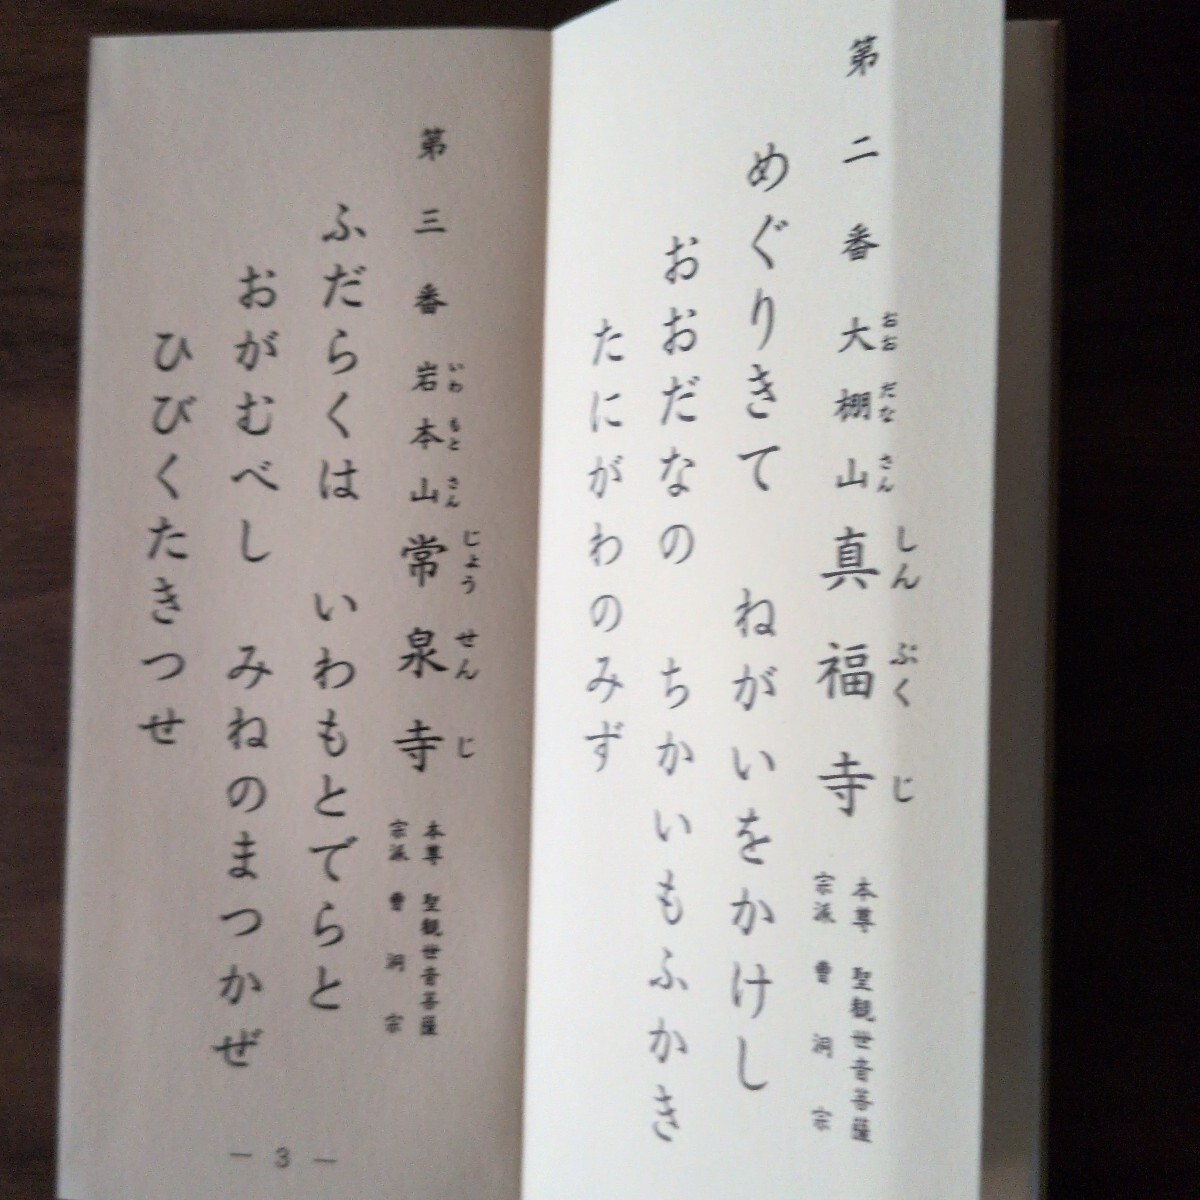 第二番 大棚山 真福寺
おおだなさん しんぷくじ
本尊 聖観世音菩薩
宗派 曹洞宗
めぐりきて ねがいをかけし
おおだなの ちかいもふかき
たにがわのみず
第三番 岩本山 常泉寺
いわもとさん じょうせんじ
本尊 聖観世音菩薩
宗派 曹洞宗
ふだらくは いわもとでらと
おがむべし みねのまつかぜ
ひびくたきつせ
― 3 ―